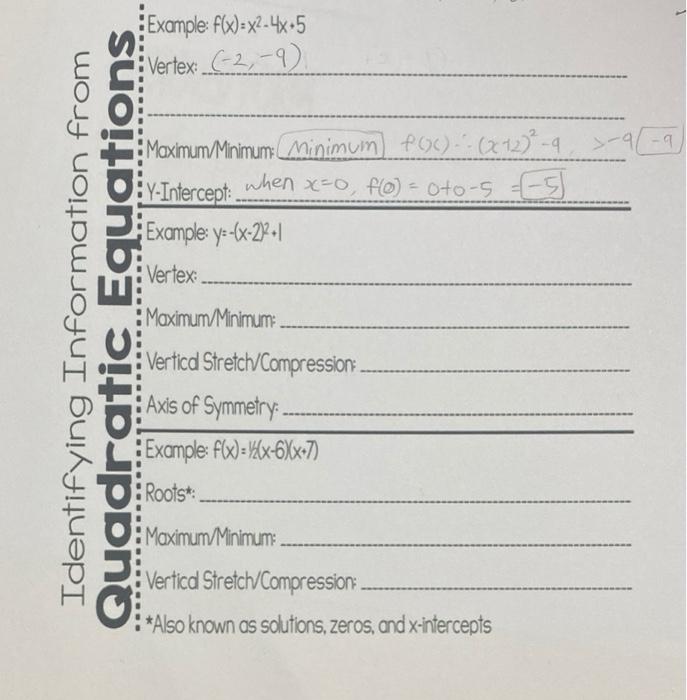 Identifying Information from
Quadratic Equations
Example: f(x)=x²-4x+5
Vertex: (-2,-9)
Maximum/Minimum: Minimum f(x) ∴ (x+2)²-9, >-9 -9
Y-Intercept: when x=0, f(0) = 0+0-5 = -5
Example: y=-(x-2)²+1
Vertex:
Maximum/Minimum:
Vertical Stretch/Compression:
Axis of Symmetry:
Example: f(x)=½(x-6)(x+7)
Roots*:
Maximum/Minimum:
Vertical Stretch/Compression:
*Also known as solutions, zeros, and x-intercepts